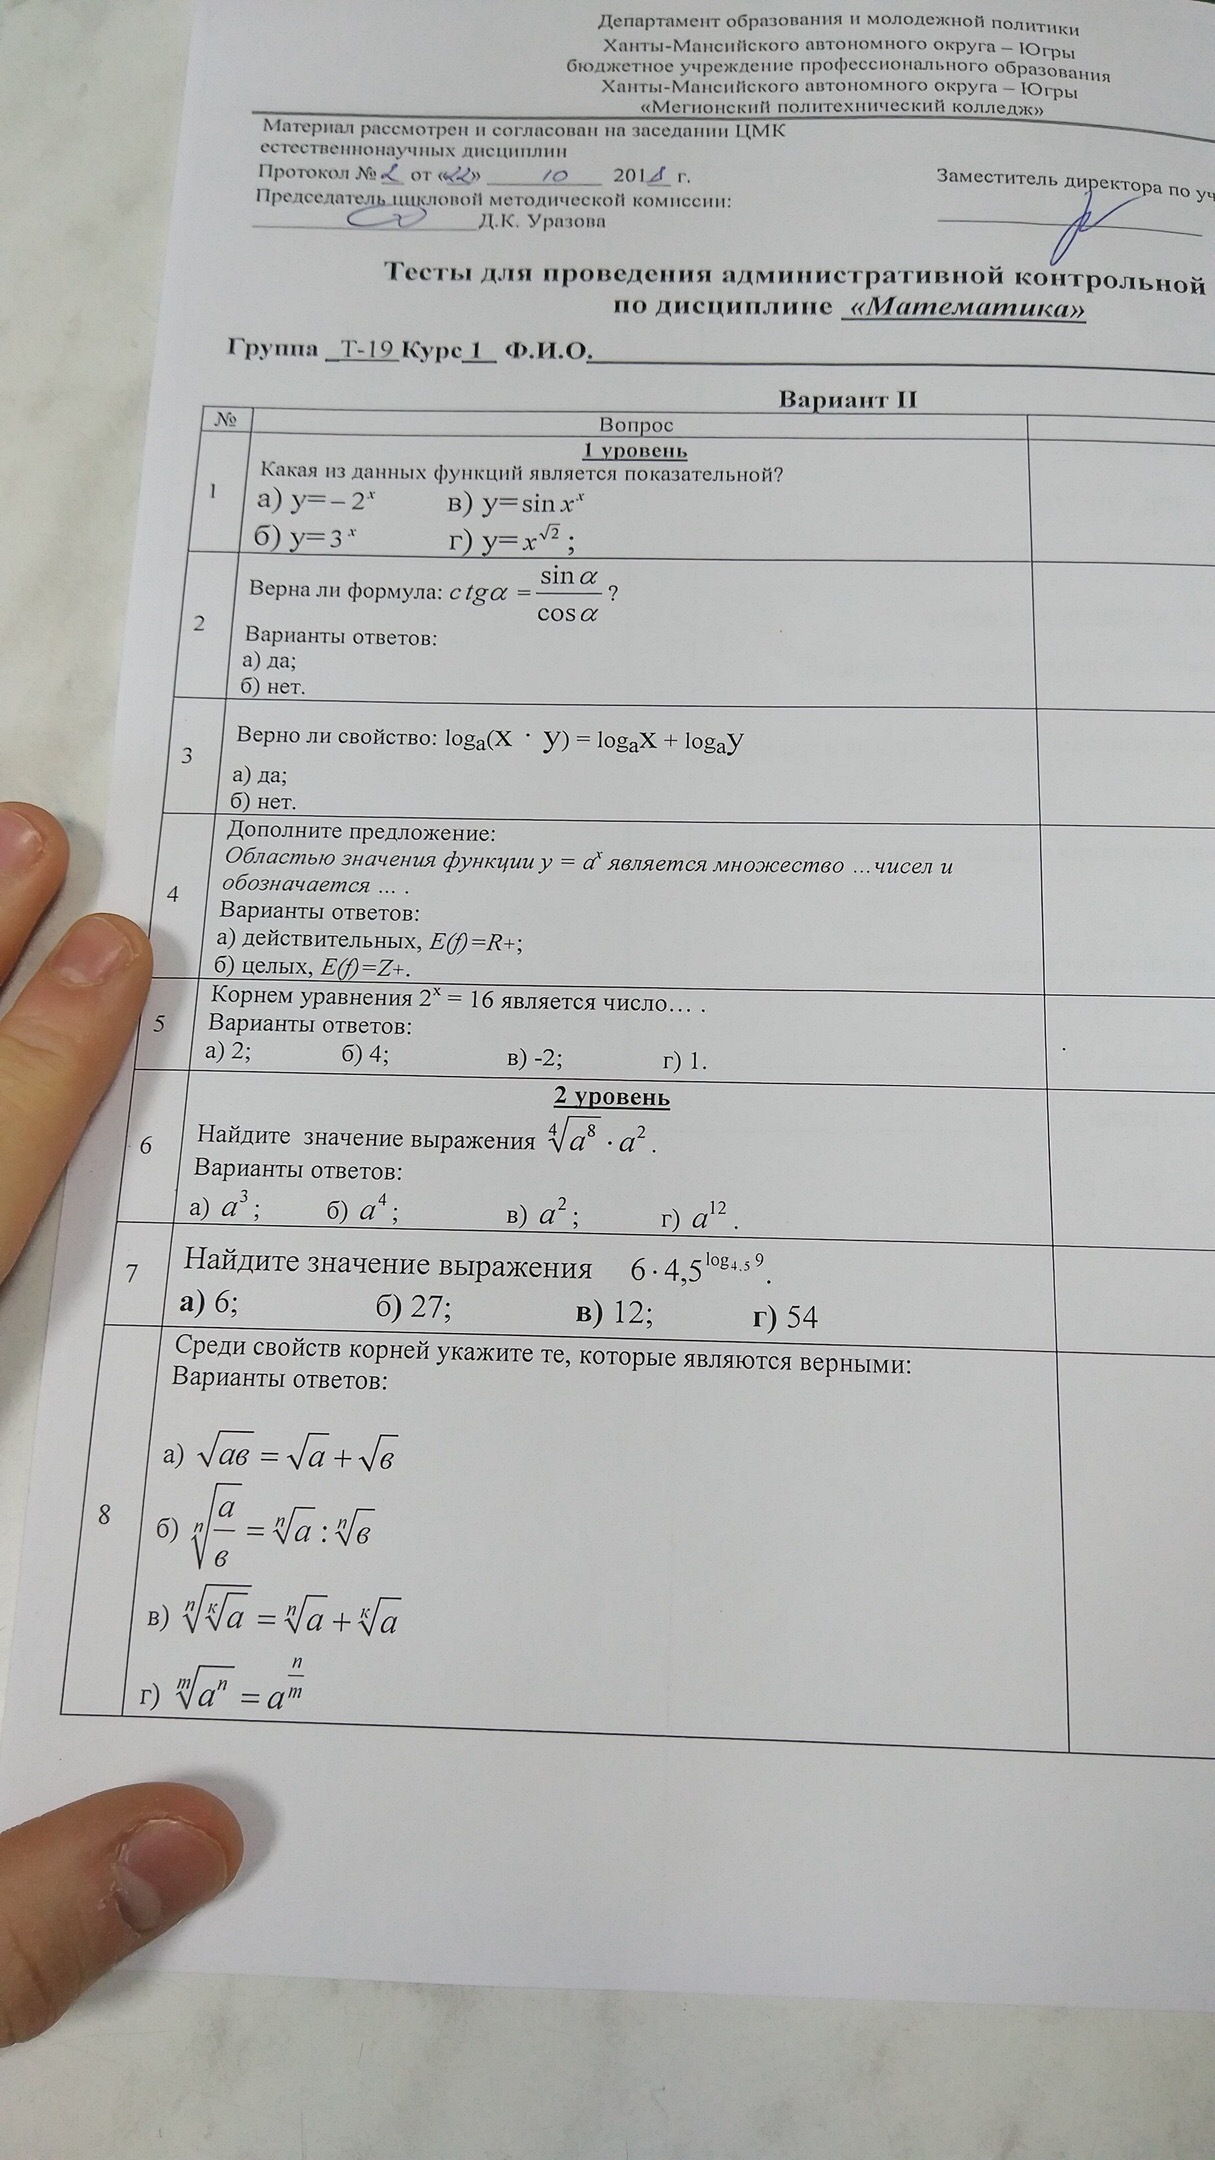 Департамент образования и молодежной политики
Ханты-Мансийского автономного округа – Югры
бюджетное учреждение профессионального образования
Ханты-Мансийского автономного округа – Югры
«Мегионский политехнический колледж»
Материал рассмотрен и согласован на заседании ЦМК
естественнонаучных дисциплин
Протокол № 2 от «22» 10 2018 г.
Председатель цикловой методической комиссии:
Д.К. Уразова
Заместитель директора по уч
Тесты для проведения административной контрольной
по дисциплине «Математика»
Группа Т-19 Курс 1 Ф.И.О.
Вариант II
№ Вопрос
1 уровень
1 Какая из данных функций является показательной?
а) y=–2ˣ в) y=sin xˣ
б) y=3ˣ г) y=x^√2 ;
2 Верна ли формула: ctgα = sin α / cos α ?
Варианты ответов:
а) да;
б) нет.
3 Верно ли свойство: logₐ(x · y) = logₐx + logₐy
а) да;
б) нет.
4 Дополните предложение:
Областью значения функции y = aˣ является множество …чисел и
обозначается … .
Варианты ответов:
а) действительных, E(f)=R+;
б) целых, E(f)=Z+.
5 Корнем уравнения 2ˣ = 16 является число… .
Варианты ответов:
а) 2; б) 4; в) -2; г) 1.
2 уровень
6 Найдите значение выражения ⁴√a⁸ · a² .
Варианты ответов:
а) a³ ; б) a⁴ ; в) a² ; г) a¹² .
7 Найдите значение выражения 6·4,5^log₄.₅ 9 .
а) 6; б) 27; в) 12; г) 54
8 Среди свойств корней укажите те, которые являются верными:
Варианты ответов:
а) √ав = √а + √в
б) ⁿ√(а/в) = ⁿ√а : ⁿ√в
в) ⁿ√ᵏ√а = ⁿ√а + ᵏ√а
г) ᵐ√aⁿ = a^(n/m)